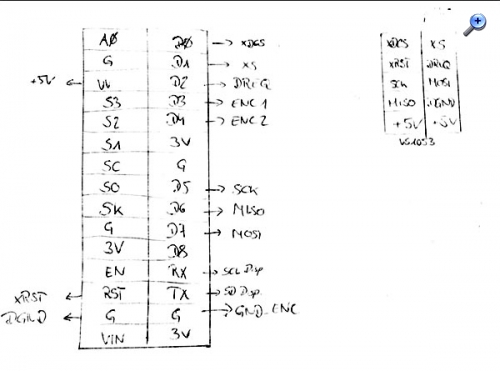 AØ DØ → XDCS
G D1 → XS
+5V ← VV D2 → DREQ
S3 D3 → ENC 1
S2 D4 → ENC 2
S1 3V
SC G
SO D5 → SCK
SK D6 → MISO
G D7 → MOSI
3V D8
EN RX → SCL Disp
XRST ← RST TX → SD Disp
DGND ← G G → GND_ENC
VIN 3V
XDCS XS
XRST DREQ
SCK MOSI
MISO DGND
+5V +5V
VS1053